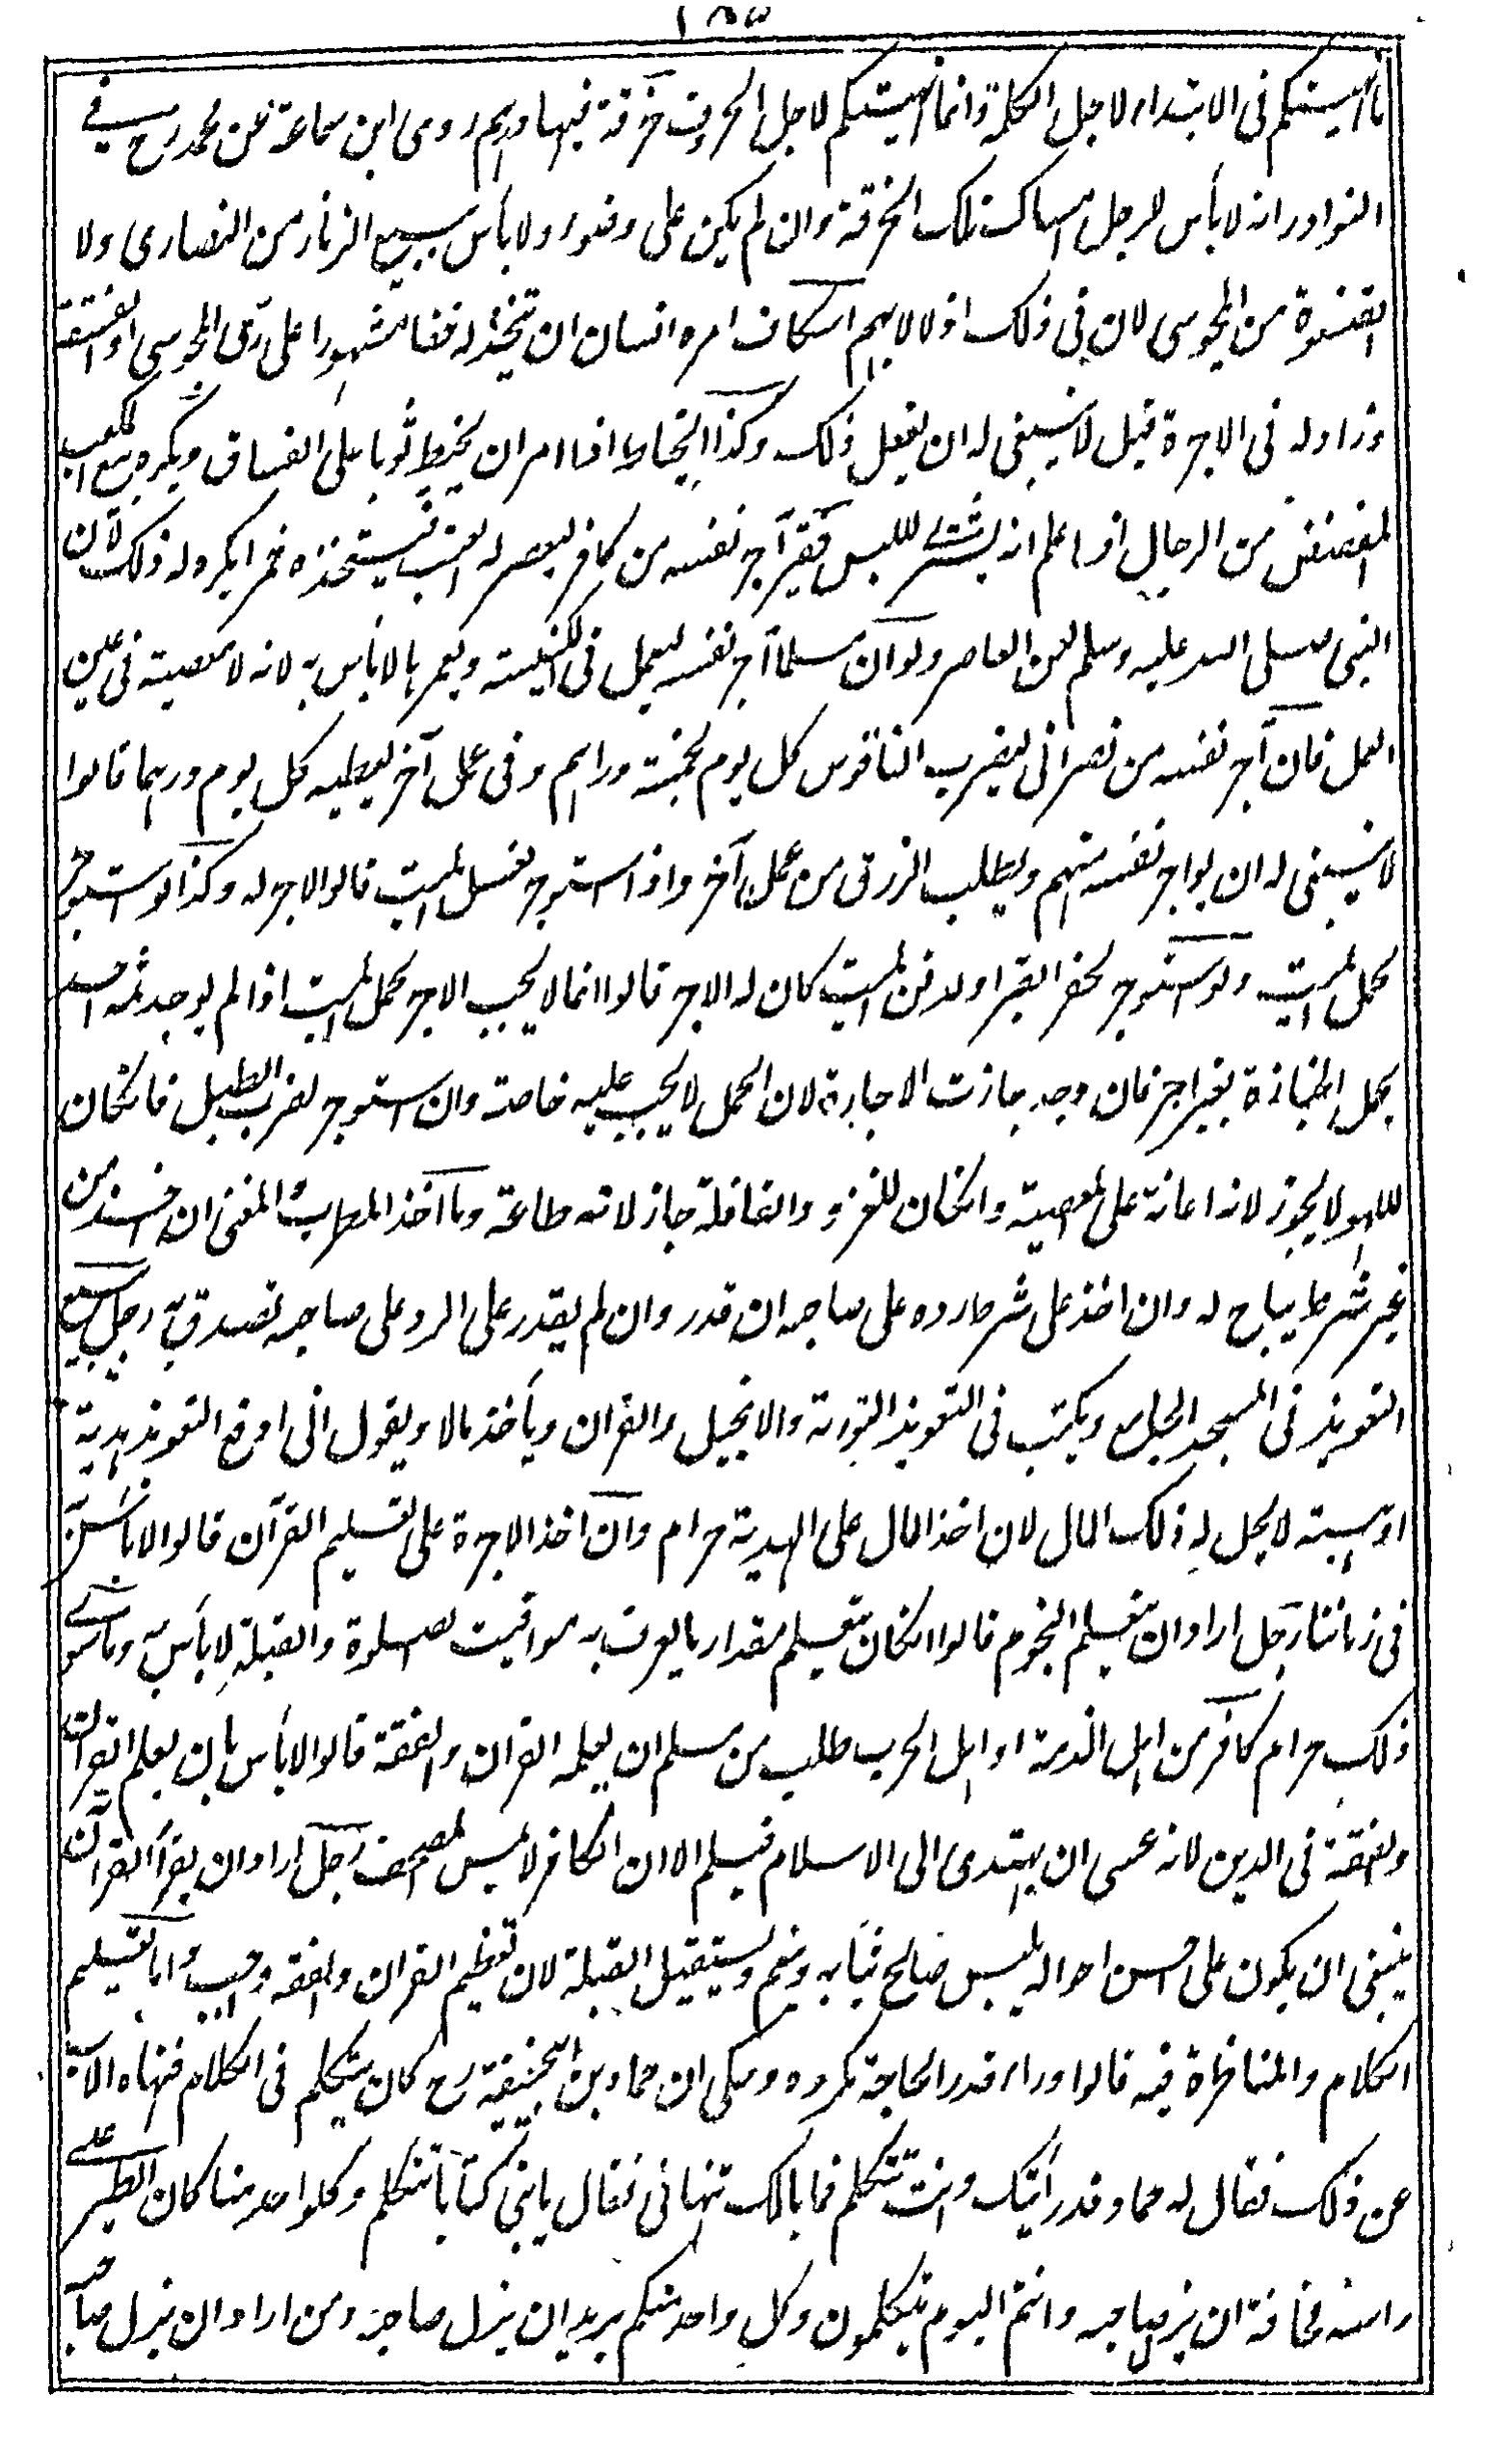 ١٣٥
ما نهيتكم فى الابتداء لاجل الكلمة وانما نهيتكم لاجل الحروف خرقة فيها دراهم روى ابن سماعة عن محمد رح فے
النوادر انه لا بأس للرجل امساك تلك الخرقة وان لم يكن على وضوء ولا بأس ببيع الزنار من النصارى ولا
القلنسوة من المجوسى لان فى ذلك اذلالا لهم اسكاف امره انسان ان يتخذ له خفا مشهورا على زى المجوسى او الفسقة
وزاد له فى الاجرة قيل لا ينبغى له ان يفعل ذلك وكذا الخياط اذا امر ان يخيط ثوبا على الفساق ويكره بيع المكعب
المفضض من الرجال اذا علم انه يشترى للبس فقير آجر نفسه من كافر ليعصر له العنب فيتخذه خمرا يكره له ذلك لان
النبى صلى الله عليه وسلم لعن العاصر ولو ان مسلما آجر نفسه ليعمل فى الكنيسة ويعمرها لا بأس به لانه لا معصية فى عين
العمل فان آجر نفسه من نصرانى ليضرب الناقوس كل يوم بخمسة دراهم وفى عمل آخر يعطيه كل يوم درهما قالوا
لا ينبغى له ان يواجر نفسه منهم ويطلب الرزق من عمل آخر واذا استوجر لغسل الميت قالوا لا اجر له وكذا لو استوجر
لحمل الميت ولو استوجر لحفر القبر او لدفن الميت كان له الاجر قالوا انما لا يجب الاجر لحمل الميت اذا لم يوجد ثمه احد
يحمل الجنازة بغير اجر فان وجد جازت الاجارة لان الحمل لا يجب عليه خاصة وان استوجر لضرب الطبل فانكان
للهو لا يجوز لانه اعانة على المعصية وانكان للغزو والقافلة جاز لانه طاعة وما اخذ المطرب والمغنى ان اخذ من
غير شرط يباح له وان اخذ على شرط رده على صاحبه ان قدر وان لم يقدر على الرد على صاحبه تصدق به رجل يبيع
التعويذ فى المسجد الجامع ويكتب فى التعويذ التورىة والانجيل والقرآن ويأخذ مالا ويقول انى ادفع التعويذ هدية
او هبة لا يحل له ذلك المال لان اخذ المال على الهدية حرام وان اخذ الاجرة على تعليم القرآن قالوا لا بأس به
فى زماننا رجل اراد ان يتعلم النجوم قالوا انكان يتعلم مقدار ما يعرف به مواقيت الصلوة والقبلة لا بأس به وما سوى
ذلك حرام كافر من اهل الذمة او اهل الحرب طلب من مسلم ان يعلمه القرآن والفقه قالوا لا بأس بان يعلم القرآن
والفقه فى الدين لانه عسى ان يهتدى الى الاسلام فيسلم الا ان الكافر لا يمس المصحف رجل اراد ان يقرأ القرآن
ينبغى ان يكون على احسن احواله يلبس صالح ثيابه ويتعمم ويستقبل القبلة لان تعظيم القرآن والفقه واجب واما تعليم
الكلام والمناظرة فيه قالوا وراء قدر الحاجة مكروه وحكى ان حماد بن ابيحنيفة رح كان يتكلم فى الكلام فنهاه الاب
عن ذلك فقال له حماد قد رأيتك وانت تتكلم فما بالك تنهانى فقال يا بنى كنا نتكلم وكل واحد منا كان الطير على
راسه مخافة ان يزل صاحبه وانتم اليوم تتكلمون وكل واحد منكم يريد ان يزل صاحبه ومن اراد ان يزل صاحبه